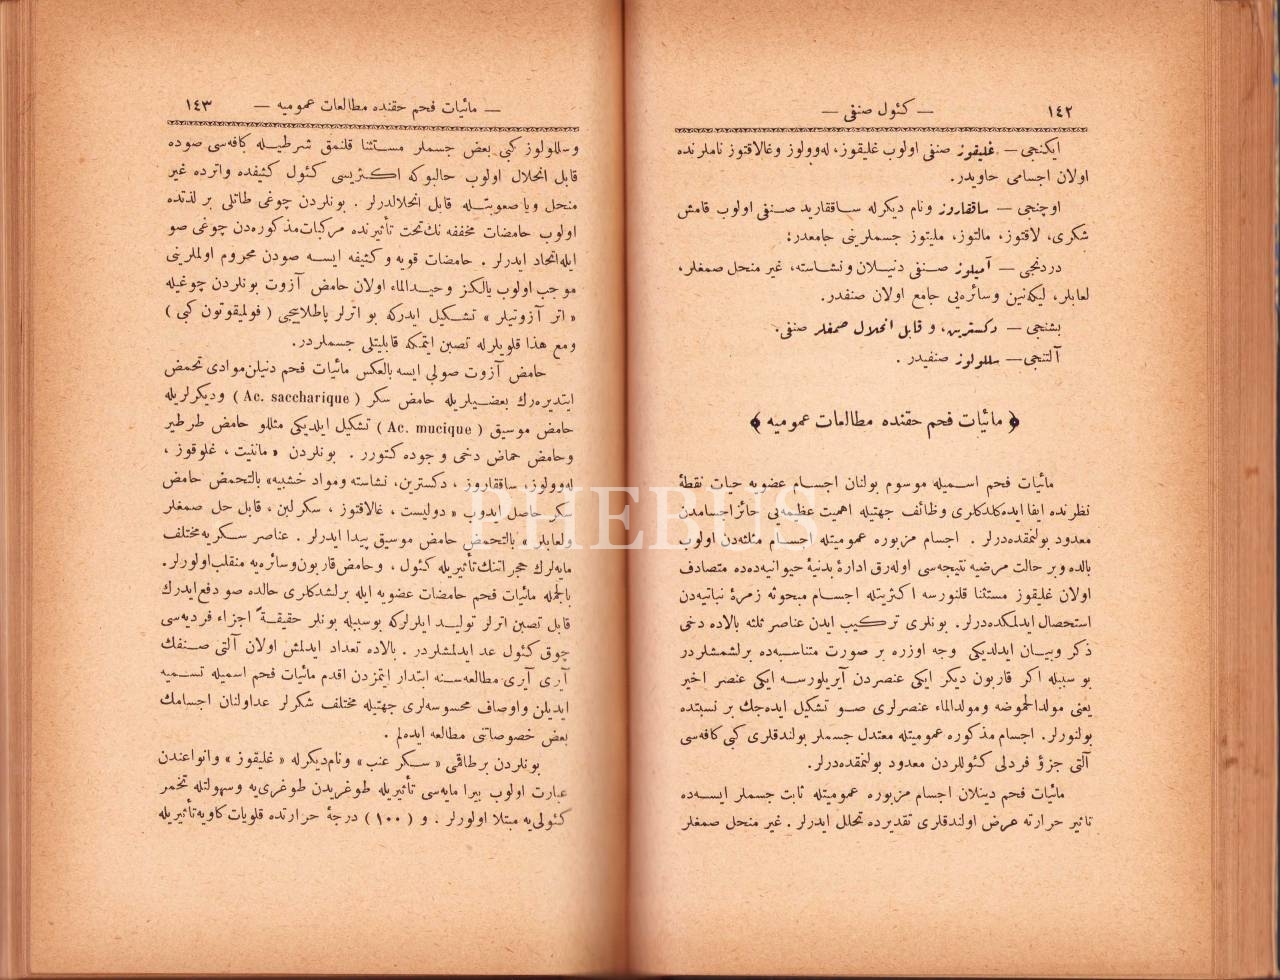 ١٤٢
— كئول صنفی —
ایكنجی — غلیقوز صنفی اولوب غلیقوز، له‌وولوز وغالاقتوز ناملرنده
اولان اجسامی حاویدر.
اوچنجی — ساققاروز ونام دیكرله ساققارید صنفی اولوب قامش
شكری، لاقتوز، مالتوز، ملیتوز جسملرینی جامعدر؛
دردنجی — آمیلوز صنفی دنیلان ونشاسته، غیر منحل صمغلر،
لعابلر، لیكه‌نین وسائره‌یی جامع اولان صنفدر.
بشنجی — دكسترین، و قابل انحلال صمغلر صنفی.
آلتنجی — سللولوز صنفیدر .
﴿ مائیات فحم حقنده مطالعات عمومیه ﴾
مائیات فحم اسمیله موسوم بولنان اجسام عضویه حیات نقطۀ
نظرنده ایفا ایده‌كلدكلری وظائف جهتیله اهمیت عظیمه‌یی حائز اجسامدن
معدود بولنمقده‌درلر . اجسام مزبوره عمومیتله اجسام مثلثه‌دن اولوب
بالده وبر حالت مرضیه نتیجه‌سی اوله‌رق ادارۀ بدنیۀ حیوانیه‌ده‌ده متصادف
اولان غلیقوز مستثنا قلنورسه اكثریتله اجسام مبحوثه زمرۀ نباتیه‌دن
استحصال ایدلمكده‌درلر. بونلری تركیب ایدن عناصر ثلثه بالاده دخی
ذكر وبیان ایدلدیكی وجه اوزره بر صورت متناسبه‌ده برلشمشلردر
بو سببله اكر قاربون دیكر ایكی عنصردن آیریلورسه ایكی عنصر اخیر
یعنی مولدالحموضه ومولدالماء عنصرلری صو تشكیل ایده‌جك بر نسبتده
بولنورلر. اجسام مذكوره عمومیتله معتدل جسملر بولندقلری كبی كافه‌سی
آلتی جزؤ فردلی كئوللردن معدود بولنمقده‌درلر.
مائیات فحم دینلان اجسام مزبوره عمومیتله ثابت جسملر ایسه‌ده
تاثیر حرارته عرض اولندقلری تقدیرده تحلل ایدرلر . غیر منحل صمغلر
— مائیات فحم حقنده مطالعات عمومیه —
١٤٣
وسللولوز كبی بعض جسملر مستثنا قلنمق شرطیله كافه‌سی صوده
قابل انحلال اولوب حالبوكه اكثریسی كئول كثیفده واترده غیر
منحل ویا صعوبتله قابل انحلالدرلر . بونلردن چوغی طاتلی بر لذتده
اولوب حامضات مخففه نك تحت تأثیرنده مركبات مذكوره‌دن چوغی صو
ایله اتحاد ایدرلر . حامضات قویه وكثیفه ایسه صودن محروم اولملرینی
موجب اولوب یالكز وحیدالماء اولان حامض آزوت بونلردن چوغیله
« اتر آزوتیلر » تشكیل ایدركه بو اترلر پاطلاییجی ( فولمیقوتون كبی )
ومع هذا قلویلرله تصبن ایتمكه قابلیتلی جسملردر.
حامض آزوت صولی ایسه بالعكس مائیات فحم دنیلن موادی تحمض
ایتدیره‌رك بعضیلریله حامض سكر ( Ac. saccharique ) ودیكرلریله
حامض موسیق ( Ac. mucique ) تشكیل ایلدیكی مثللو حامض طرطیر
وحامض حماض دخی وجوده كتورر . بونلردن « ماننیت ، غلوقوز ،
له‌وولوز، ساققاروز ، دكسترین، نشاسته ومواد خشبیه» بالتحمض حامض
سكر حاصل ایدوب « دولیست ، غالاقتوز ، سكر لبن ، قابل حل صمغلر
ولعابلر » بالتحمض حامض موسیق پیدا ایدرلر . عناصر سكریه مختلف
مایه‌لرك حجراتنك تأثیریله كئول ، وحامض قاربون وسائره‌یه منقلب اولورلر.
بالجمله مائیات فحم حامضات عضویه ایله برلشدكلری حالده صو دفع ایدرك
قابل تصبن اترلر تولید ایلرلركه بوسببله بونلر حقیقةً اجزاء فردیه‌سی
چوق كئول عد ایدلمشلردر . بالاده تعداد ایدلمش اولان آلتی صنفك
آیری آیری مطالعه‌سنه ابتدار ایتمزدن اقدم مائیات فحم اسمیله تسمیه
ایدیلن واوصاف محسوسه‌لری جهتیله مختلف شكرلر عداولنان اجسامك
بعض خصوصاتنی مطالعه ایده‌لم .
بونلردن برطاقمی « سكر عنب » ونام دیكرله « غلیقوز » وانواعندن
عبارت اولوب بیرا مایه‌سی تأثیریله طوغریدن طوغری‌یه وسهولتله تخمر
كئولی‌یه مبتلا اولورلر . و ( ١٠٠ ) درجۀ حرارتده قلویات كاویه تأثیریله
PHEBUS